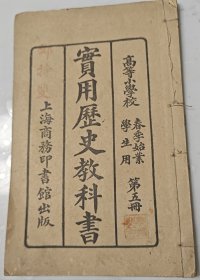 高等小學校
春季始業
學生用
第五冊
實用歷史教科書
上海商務印書館出版